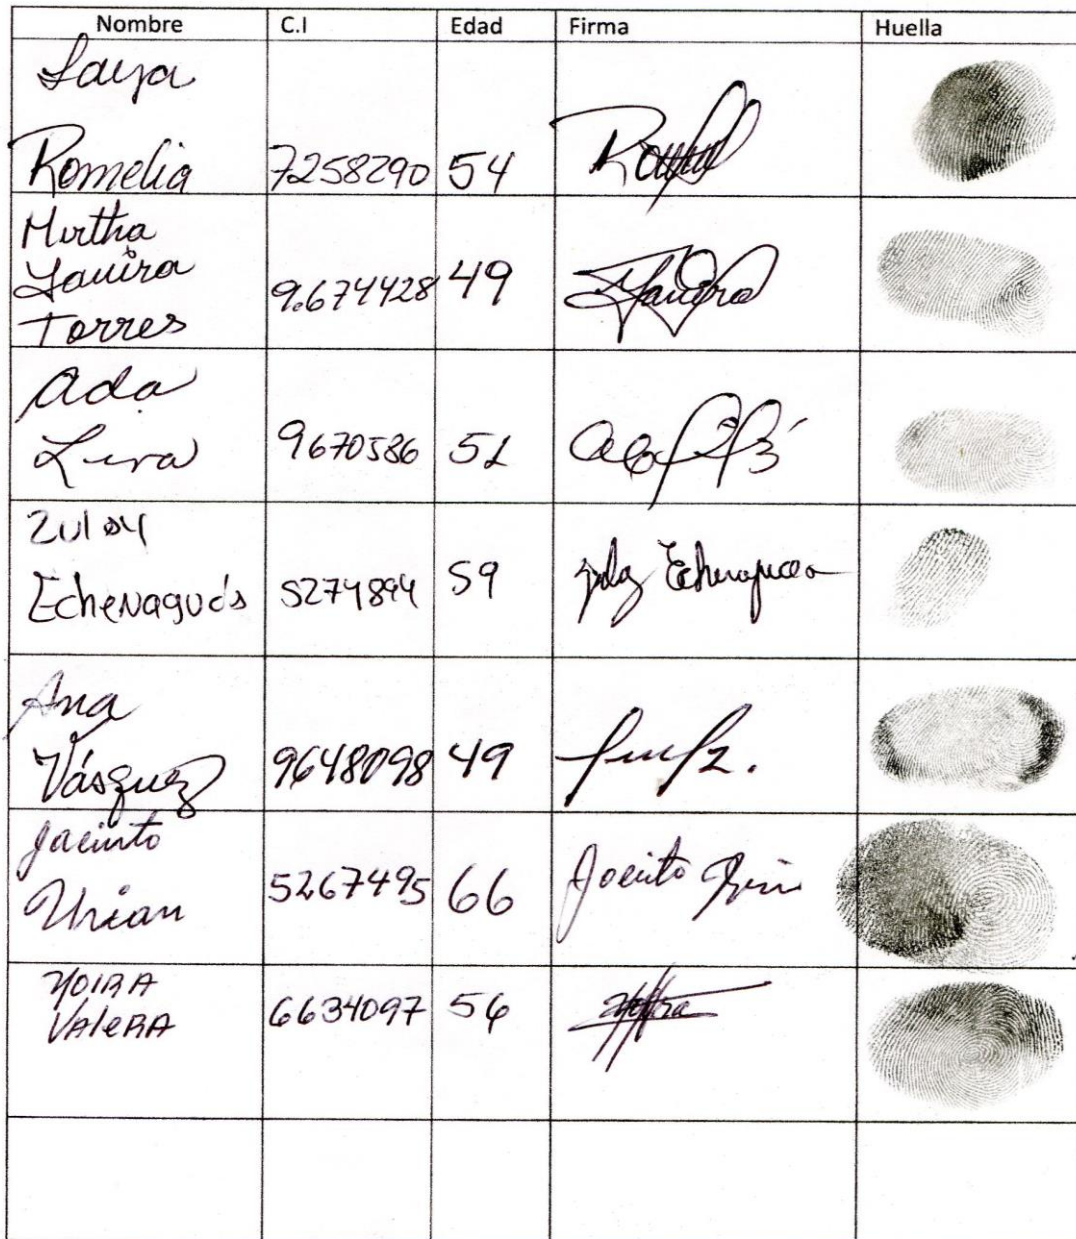 Nombre C.I Edad Firma Huella
Laya
Romelia 7258290 54
Mirtha
Yanira
Torres 9.674428 49 Yanira
Ada
Lira 9670586 51
Zulay
Echenagucia 5274894 59 Echenagucia
Ana
Vásquez 9648098 49
Jacinto
Urian 5267495 66 Jacinto
YOIRA
VALERA 6634097 56